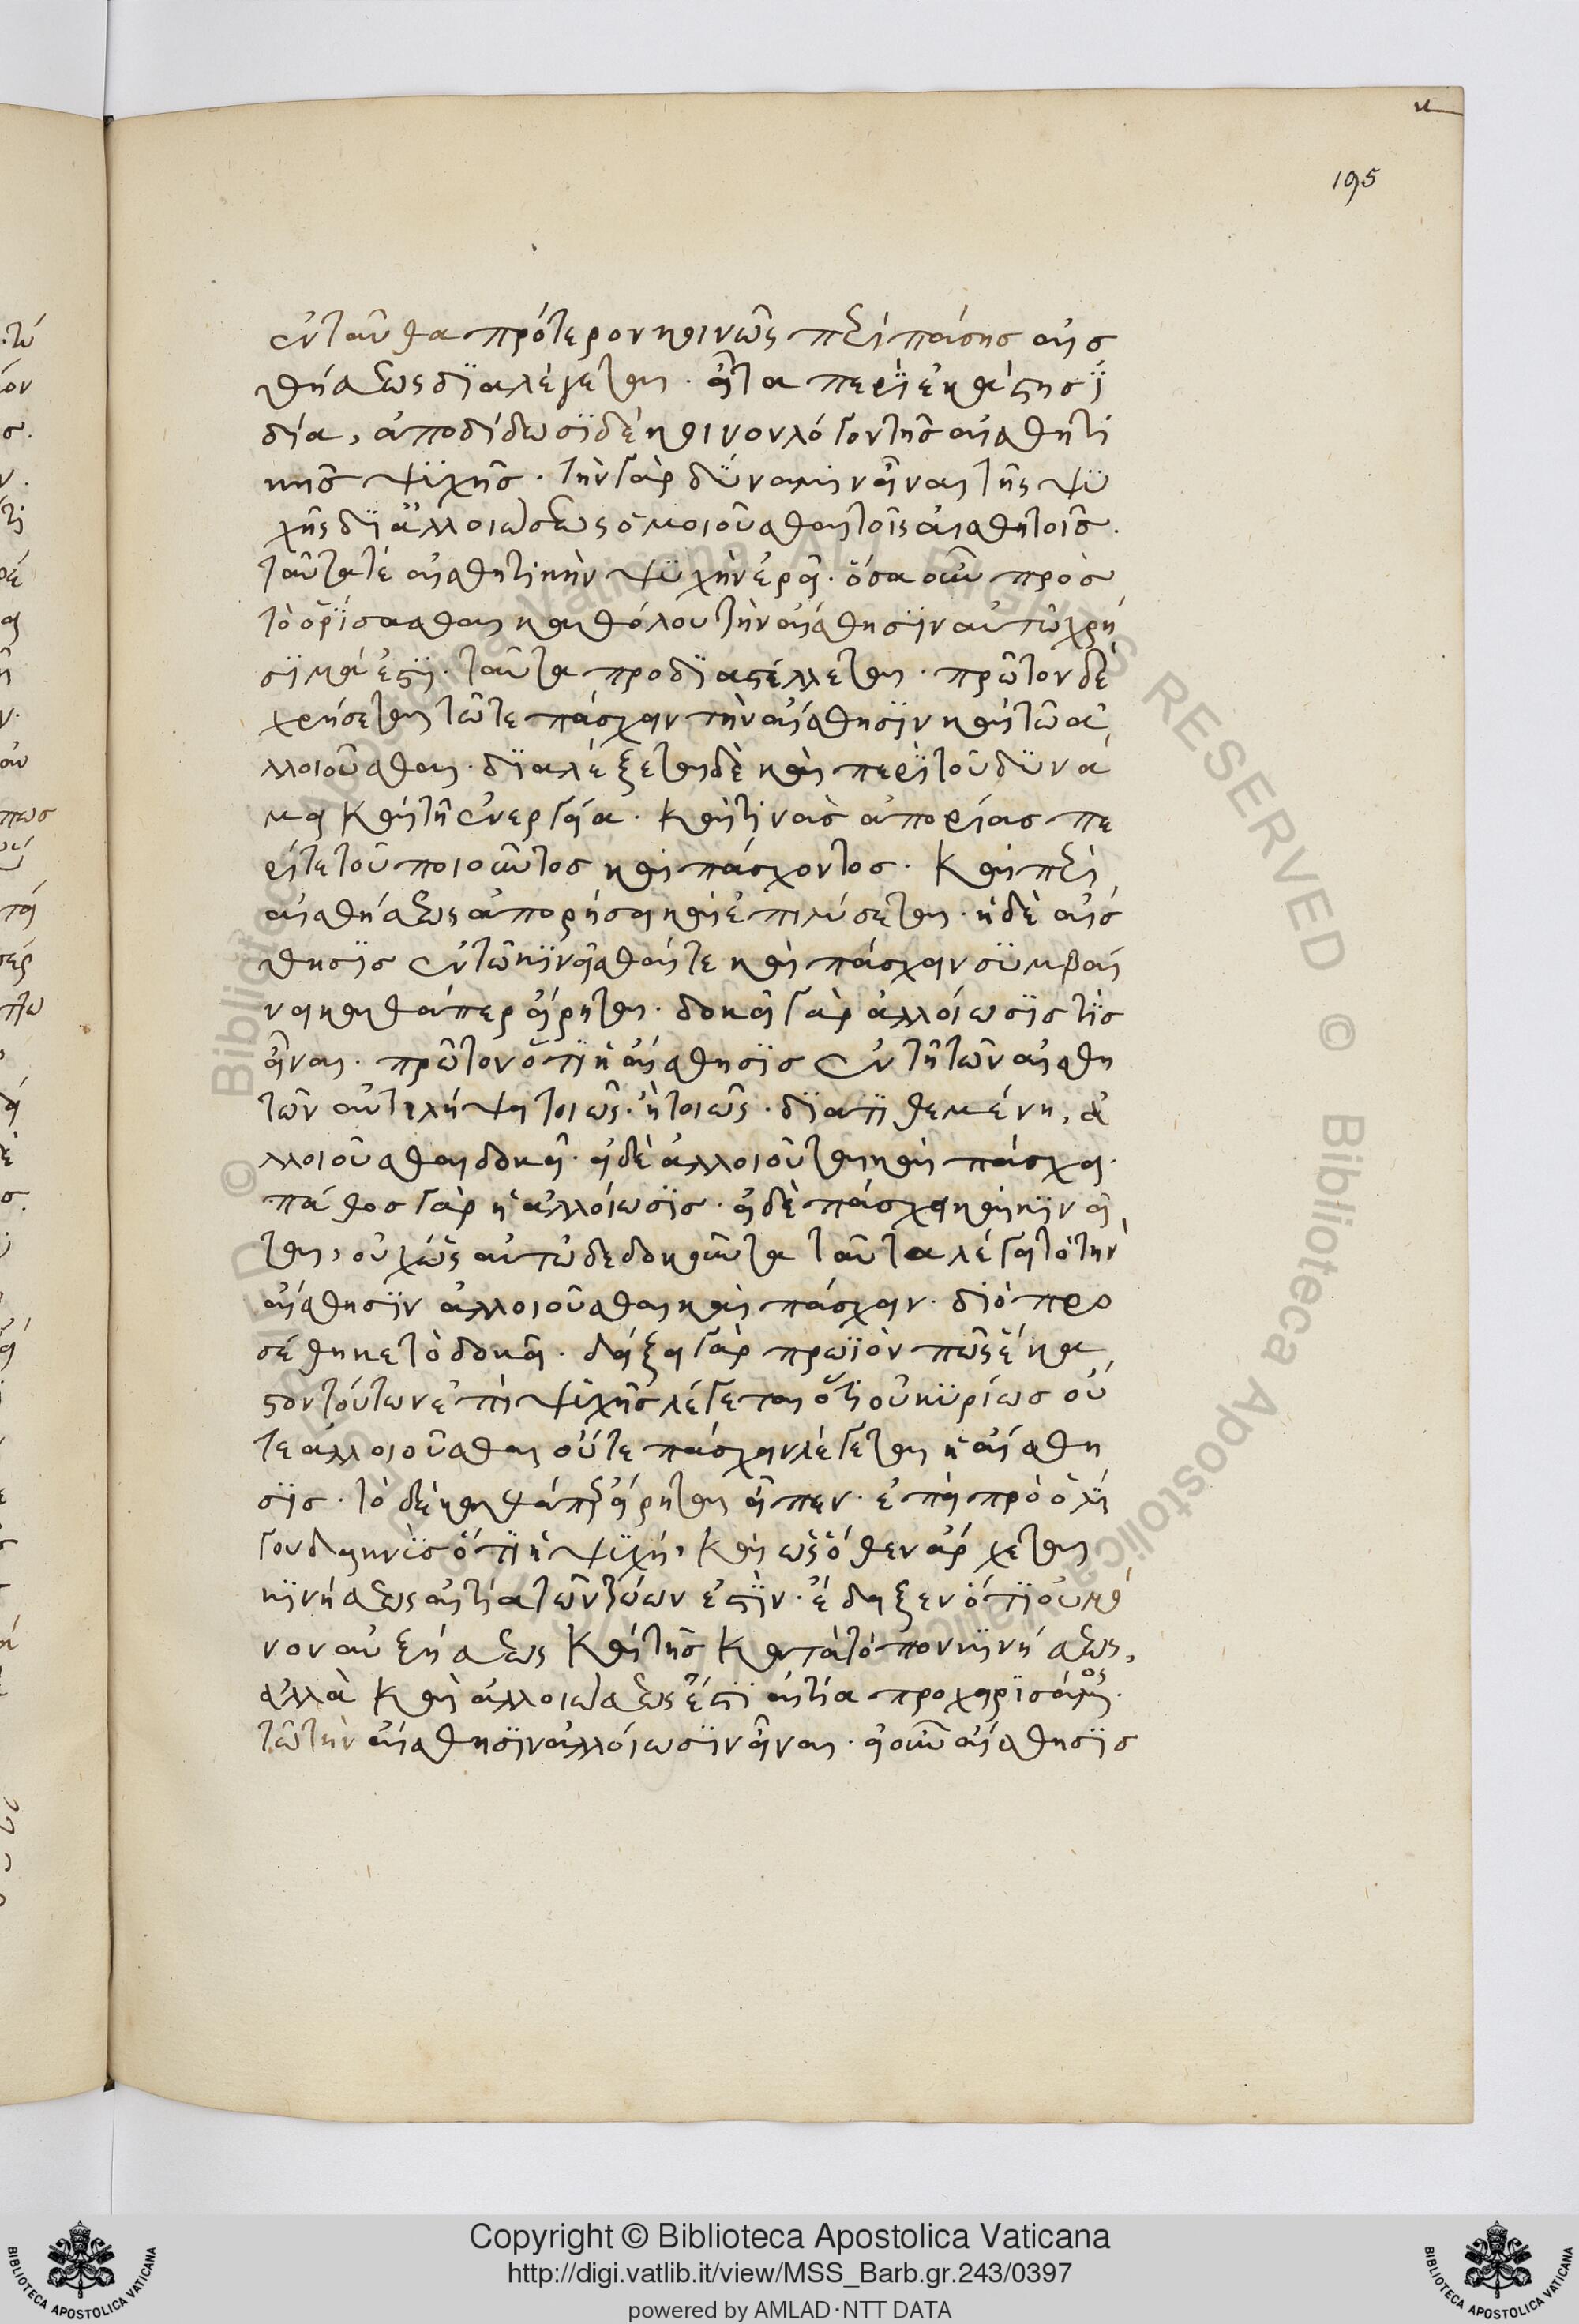 κ
195
ἐνταῦθα πρότερον κοινῶς περὶ πάσης αἰσ
θήσεως διαλέγεται. εἶτα περὶ ἑκάστης ἰ
δία, ἀποδίδωσι δὲ κοινὸν λόγον τῆς αἰσθητι
κῆς ψυχῆς. τὴν γὰρ δύναμιν εἶναι τῆς ψυ
χῆς δι' ἀλλοιώσεως ὁμοιοῦσθαι τοῖς αἰσθητοῖς.
ταῦτά τε αἰσθητικὴν ψυχὴν ἐρεῖ. ὅσα οὖν πρὸς
τὸ ὁρίσασθαι καθόλου τὴν αἴσθησιν αὐτῷ χρή
σιμά ἐστι. ταῦτα προδιαστέλλεται. πρῶτον δὲ
χρήσεται τῶ τε πάσχειν τὴν αἴσθησιν καὶ τῶ ἀ
λλοιοῦσθαι. διαλέξεται δὲ καὶ περὶ τοῦ δυνά
μει καὶ τῆ ἐνεργεία. καί τινας ἀπορίας πε
ρί τε τοῦ ποιοῦντος καὶ πάσχοντος. καὶ περὶ
αἰσθήσεως ἀπορήσει καὶ ἐπιλύσεται. ἡ δὲ αἴσ
θησις ἐν τῶ κινεῖσθαί τε καὶ πάσχειν συμβαί
νει καθάπερ εἴρηται. δοκεῖ γὰρ ἀλλοίωσίς τις
εἶναι. πρῶτον ὅτι ἡ αἴσθησις ἐν τῆ τῶν αἰσθη
τῶν ἀντιλήψει τοιῶς. ἢ τοιῶς. διατιθεμένη, ἀ
λλοιοῦσθαι δοκεῖ. εἰ δὲ ἀλλοιοῦται καὶ πάσχει.
πάθος γὰρ ἡ ἀλλοίωσις. εἰ δὲ πάσχει καὶ κινεῖ
ται, οὐχ ὡς αὐτῷ δεδοκοῦντα ταῦτα λέγει τὸ τὴν
αἴσθησιν ἀλλοιοῦσθαι καὶ πάσχειν. διὸ προ
σέθηκε τὸ δοκεῖ. δείξει γὰρ προϊὸν πῶς ἕκα
στον τούτων ἐπὶ ψυχῆς λέγεται ὅτι οὐ κυρίως οὔ
τε ἀλλοιοῦσθαι οὔτε πάσχειν λέγεται ἡ αἴσθη
σις. τὸ δὲ καθάπερ εἴρηται εἶπεν. ἐπεὶ πρὸ ὀλί
γου δεικνὺς ὅτι ἡ ψυχή, καὶ ὡς ὅθεν ἄρχεται
κινήσεως αἰτία τῶν ζώων ἐστίν. ἔδειξεν ὅτι οὐ μό
νον αὐξήσεως καὶ τῆς κατὰ τόπον κινήσεως,
ἀλλὰ καὶ ἀλλοιώσεως ἐστὶ αἰτία προχειρισάμενος.
τῶ τὴν αἴσθησιν ἀλλοίωσιν εἶναι. εἰ οὖν αἴσθησις